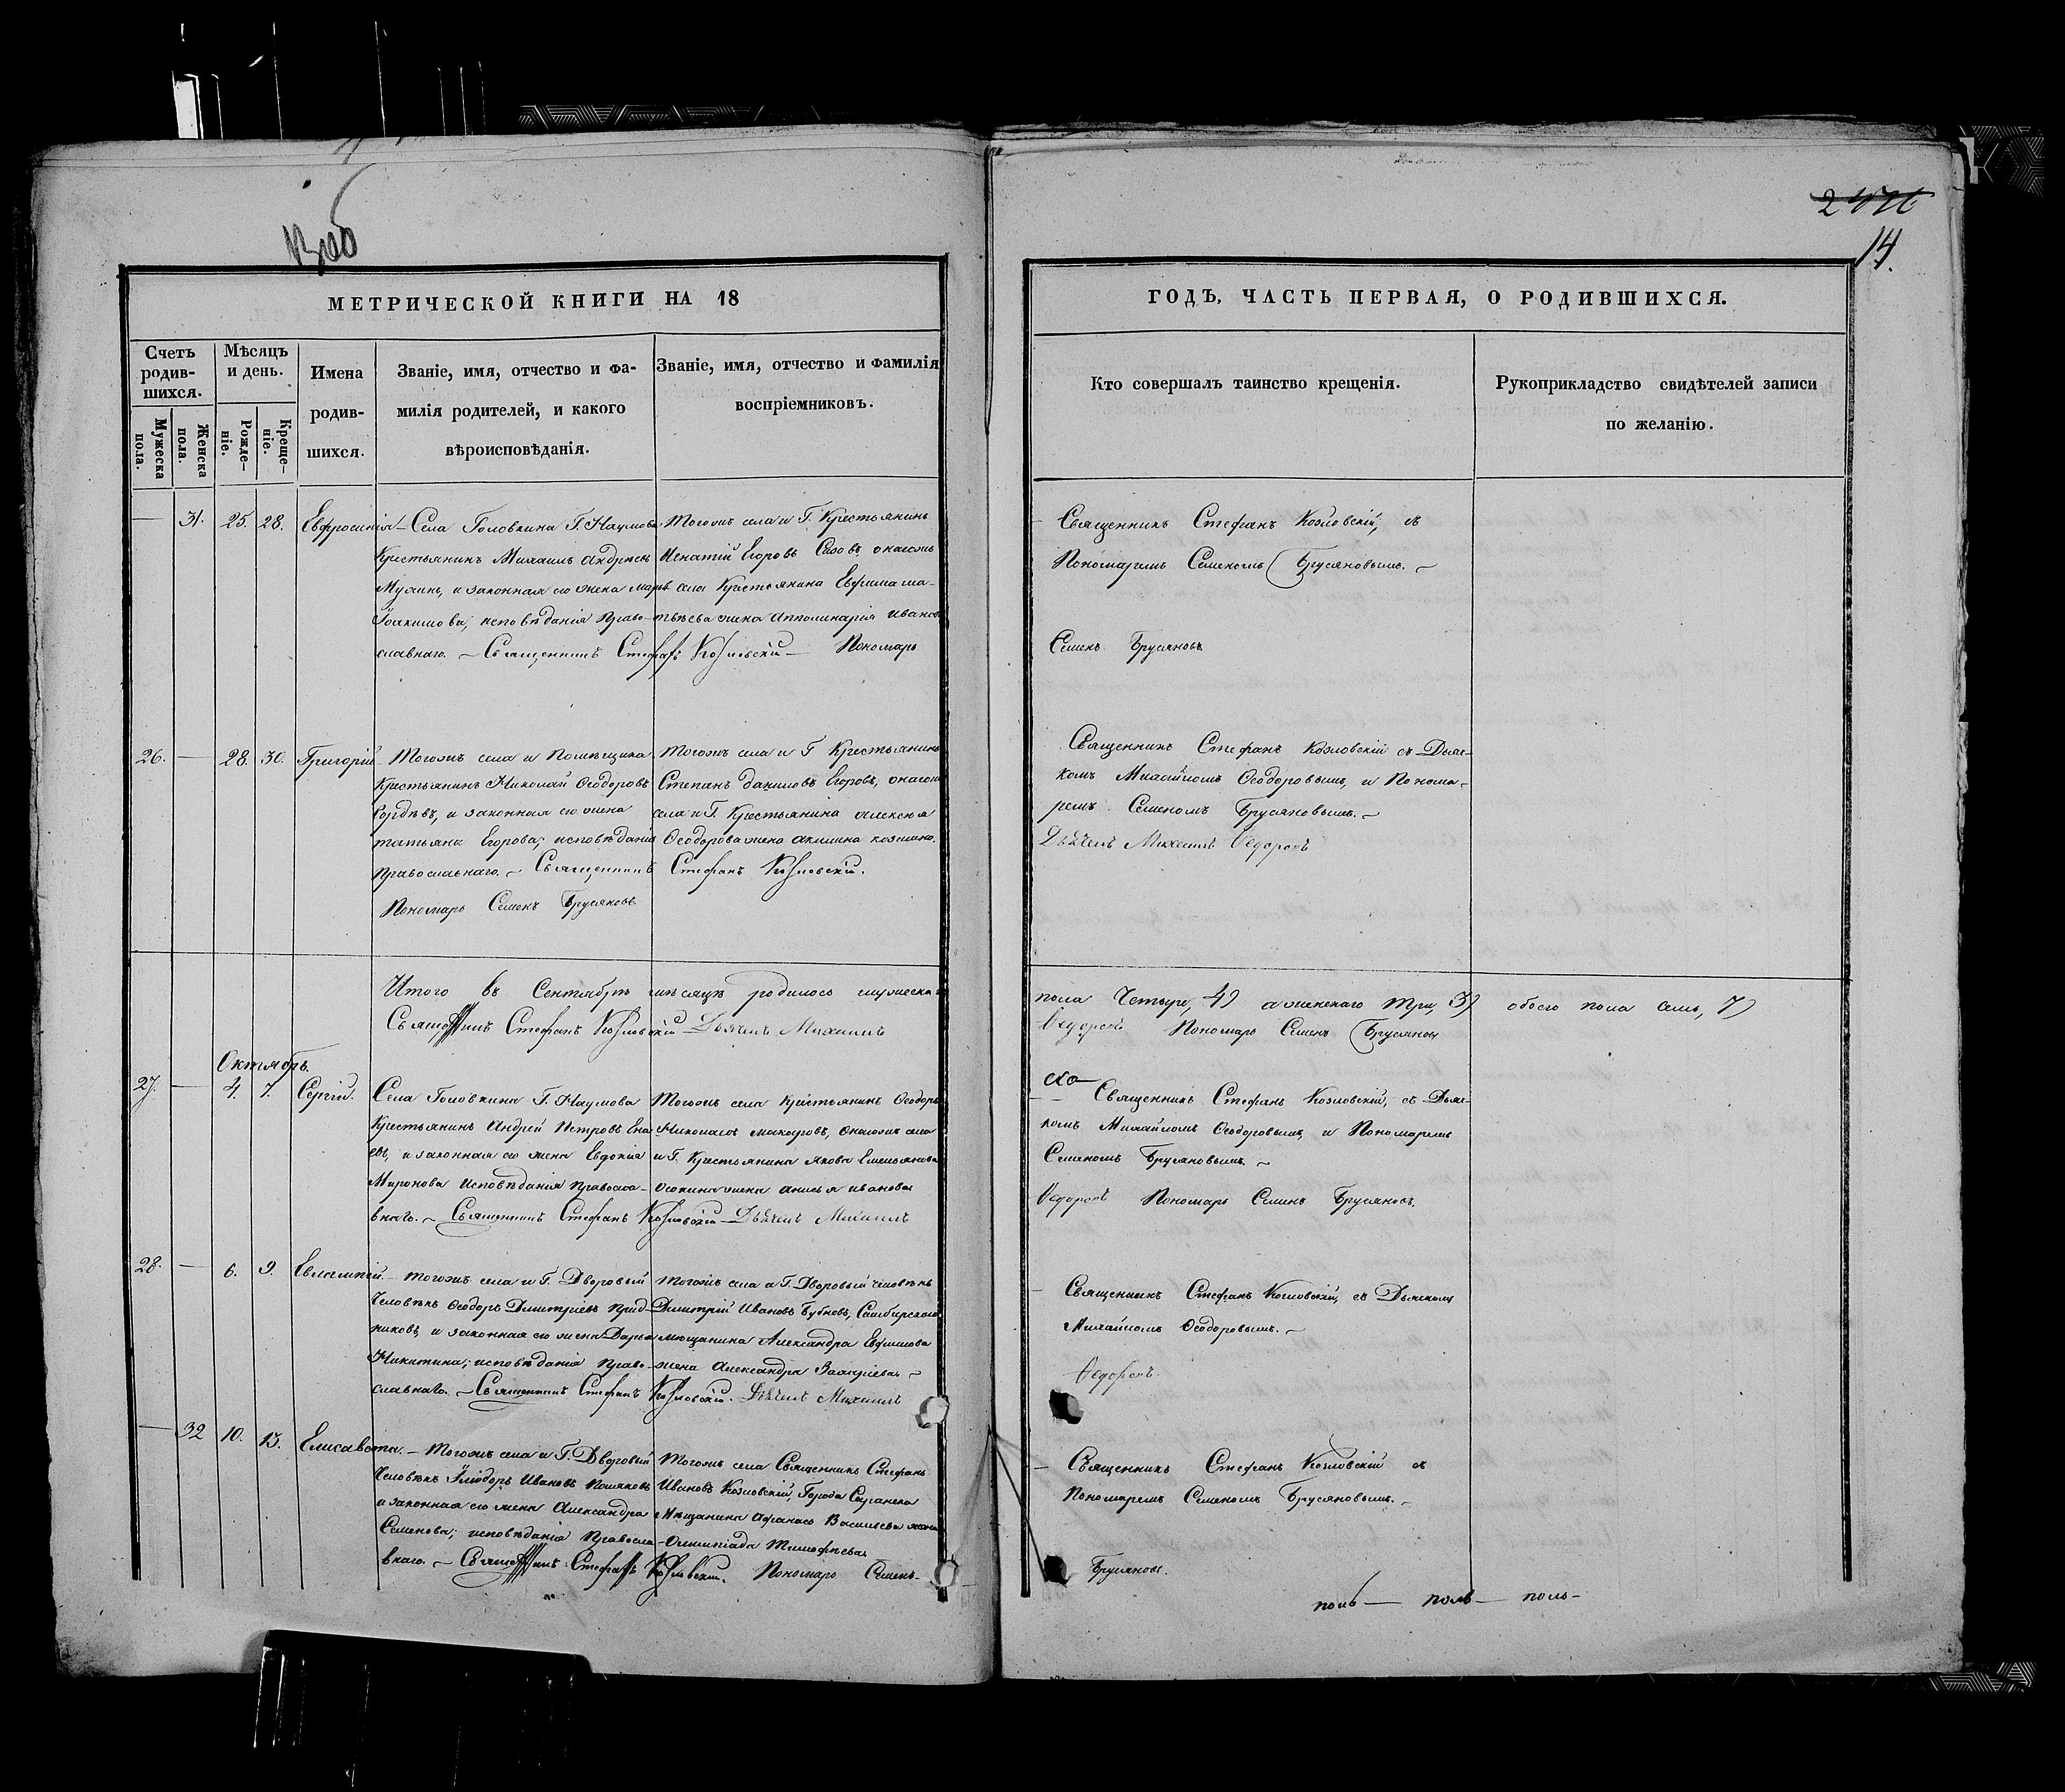 2476
14.
МЕТРИЧЕСКОЙ КНИГИ НА 18
ГОДЪ, ЧАСТЬ ПЕРВАЯ, О РОДИВШИХСЯ.
Счетъ родив-шихся.
Мужеска пола.
Женска пола.
Мѣсяцъ и день.
Рожде-ніе.
Креще-ніе.
Имена родив-шихся.
Званіе, имя, отчество и фа-
милія родителей, и какого
вѣроисповѣданія.
Званіе, имя, отчество и фамилія
воспріемниковъ.
Кто совершалъ таинство крещенія.
Рукоприкладство свидѣтелей записи
по желанію.
— 31. 25. 28. Евфросинія
Села Головкина Г. Наумова
Крестьянинъ Михаилъ Андреевъ
Мулинъ, и законная его жена Марѳа
Іоакимова, исповѣданія Право-
славнаго. — Священникъ Стефанъ Козловскій — Пономарь
Тогожъ села и Г. Крестьянинъ
Игнатій Егоровъ Сизовъ, онагожъ
села Крестьянина Евфима Ма-
твѣева жена Апполинарія Иванова
Священникъ Стефанъ Козловскій, съ
Пономаремъ Семеномъ Брусяновымъ. —
Семенъ Брусяновъ
26. — 28. 30. Григорій
Тогожъ села и Помѣщика
Крестьянинъ Николай Ѳеодоровъ
Гордѣевъ, и законная его жена
Татьяна Егорова; исповѣданія
Православнаго. — Священникъ Стефанъ Козловскій.
Пономарь Семенъ Брусяновъ
Тогожъ села и Г. Крестьянинъ
Степанъ Даниловъ Егоровъ, онагожъ
села и Г. Крестьянина Алексея
Ѳеодорова жена Акилина Козмина.
Священникъ Стефанъ Козловскій съ Дьяч-
комъ Михайломъ Ѳеодоровымъ, и Понома-
ремъ Семеномъ Брусяновымъ. —
Дьячекъ Михаилъ Ѳедоровъ
Итого въ Сентябрѣ мѣсяцѣ родилось мужеска
пола Четыре, 4) а женскаго три, 3) обоего пола семь, 7)
Священникъ Стефанъ Козловскій Дьячекъ Михаилъ
Ѳедоровъ Пономарь Семенъ Брусяновъ
Октябрь.
27. — 4. 7. Сергій.
Села Головкина Г. Наумова
Крестьянинъ Андрей Петровъ Ена-
евъ, и законная его жена Евдокія
Миронова исповѣданія Правосла-
внаго. — Священникъ Стефанъ Козловскій — Дьячекъ Михаилъ
Тогожъ села Крестьянинъ Ѳеодоръ
Николаевъ Макаровъ, онагожъ села
и Г. Крестьянина Якова Емельянова
Осокина жена Анисья Иванова
Священникъ Стефанъ Козловскій, съ Дьяч-
комъ Михайломъ Ѳеодоровымъ, и Пономаремъ
Семеномъ Брусяновымъ. —
Ѳедоровъ Пономарь Семенъ Брусяновъ
28. — 6. 9. Евлампій.
Тогожъ села и Г. Дворовый
Человѣкъ Ѳеодоръ Дмитріевъ
и законная его жена Дарья
Никитина; исповѣданія Право-
славнаго. — Священникъ Стефанъ Козловскій. Дьячекъ Михаилъ
Тогожъ села и Г. Дворовый человѣкъ
Дмитрій Ивановъ Бубновъ, Симбирскаго
мещанина Александра Евфимова
жена Александра
Священникъ Стефанъ Козловскій, съ Дьячкомъ
Михайломъ Ѳеодоровымъ. —
Ѳедоровъ
— 32 10. 13. Елисавета.
Тогожъ села и Г. Дворовый
Человѣкъ Иліодоръ Ивановъ Поляковъ
и законная его жена Александра
Семенова; исповѣданія Правосла-
внаго. — Священникъ Стефанъ Козловскій. Пономарь Семенъ
Тогожъ села Священникъ Стефанъ
Ивановъ Козловскій, Города
Мѣщанина Афанасья Васильева жена
Олимпіада Тимофѣева
Священникъ Стефанъ Козловскій съ
Пономаремъ Семеномъ Брусяновымъ. —
Брусяновъ.